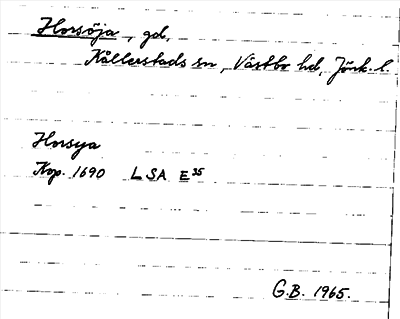 Horsöja, gd,
Kållerstads sn, Västbo hd, Jönk. l.
Horsya
Kop. 1690 LSA E 35
G.B. 1965.